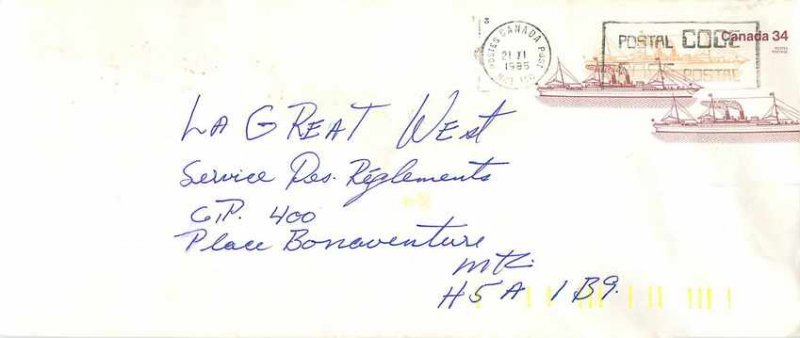 POSTES CANADA POST
21 XI
1985
POSTAL CODE
CODE POSTAL
Canada 34
POSTES
POSTAGE
LA GREAT West
Service Des Réglements
C.P. 400
Place Bonaventure
MTL.
H5A 1B9.